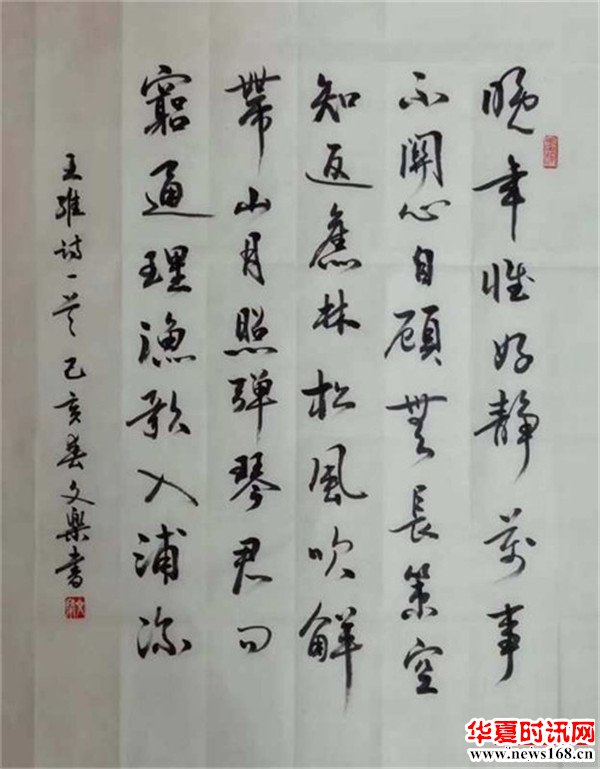 晚年惟好静萬事
不關心自顧無長策空
知返舊林松風吹解
帶山月照弹琴君问
窮通理漁歌入浦深
王维诗一首己亥春文樂書
华夏时讯网
www.news168.cn